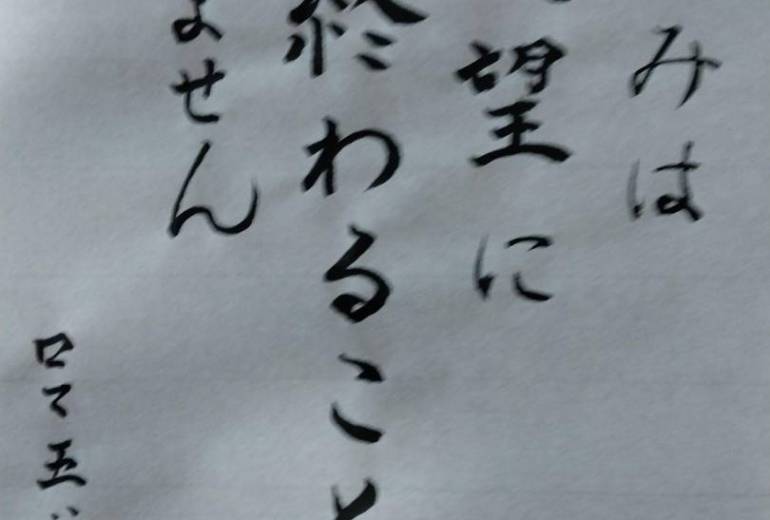 みは
望に
終わること
ません
ロマ五